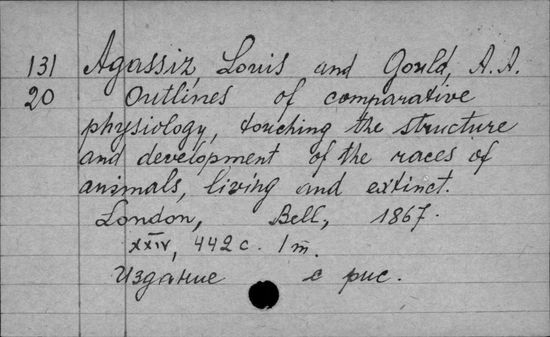 131 Agassiz, Louis and Gould, A. A.
20 Outlines of comparative
physiology, touching the structure
and development of the races of
animals, living and extinct.
London, Bell, 1867.
XXIV, 442 с. 1 m.
Издание с рис.